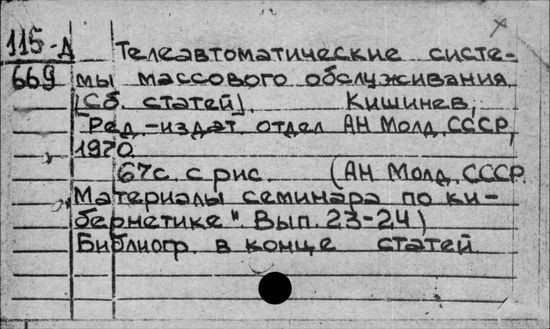 115-Д Телеавтоматические систе-
669 мы массового обслуживания.
[Сб. статей]. Кишинев,
Ред.-издат. отдел АН Молд. СССР,
1970.
67с. с рис. (АН Молд. СССР.
Материалы семинара по ки-
бернетике". Вып. 23-24)
Библиогр. в конце статей